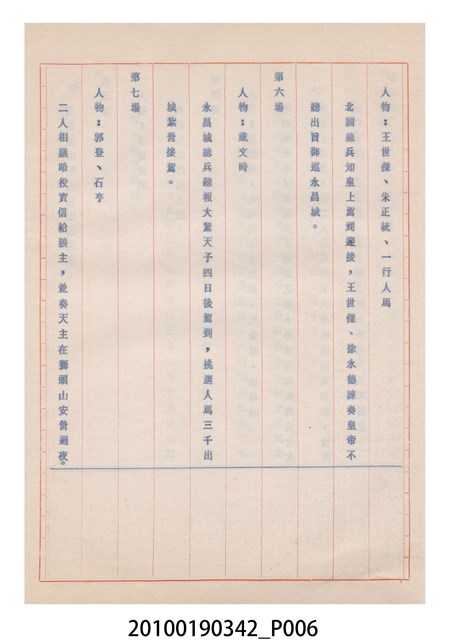 人物：王世傑、朱正統、一行人馬
北關總兵知皇上駕到迎接，王世傑、徐永德諫奏皇帝不
聽出旨御巡永昌城。
第六場
人物：戴文時
永昌城總兵線報大駕天子四日後駕到，挑選人馬三千出
城紮營接駕。
第七場
人物：郭登、石亨
二人相議暗投賣信給狼主，並奏天主在獅頭山安營過夜。
20100190342_P006